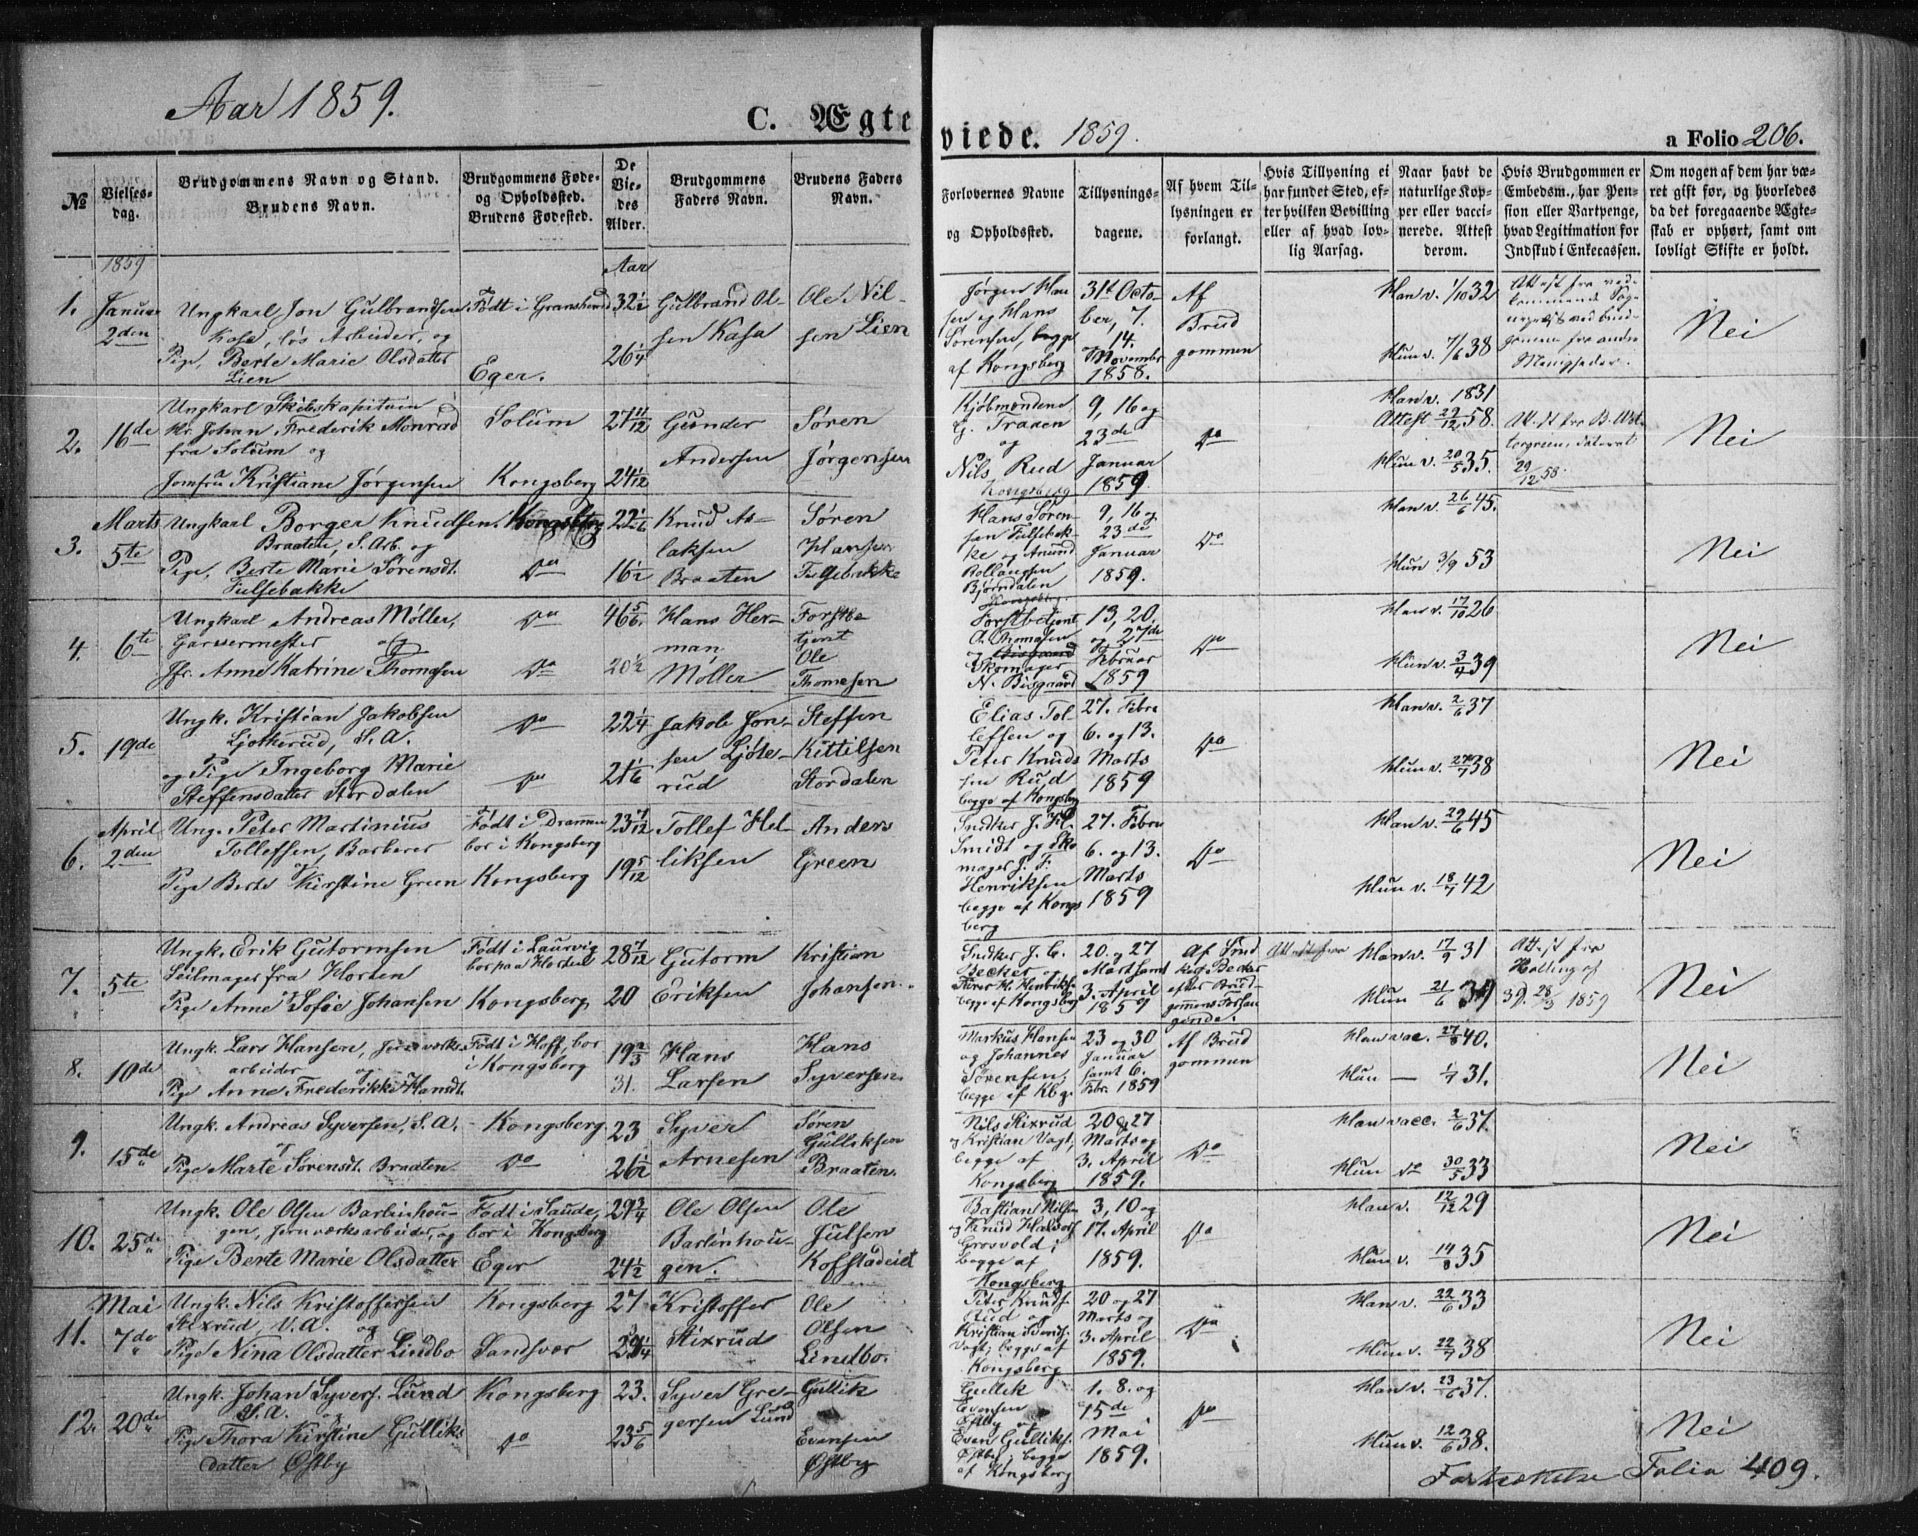 Aar 1859.
C. Ægteviede. 1859.
a Folio 206.
№
Vielses-dag.
Brudgommens Navn og Stand.
Brudens Navn.
Brudgommens Føde- og Opholdssted.
Brudens Fødested.
De Viedes Alder.
Brudgommens Faders Navn.
Brudens Faders Navn.
Forlovernes Navne og Opholdssted.
Tillysnings-dagene.
Af hvem Tillysningen er forlangt.
Hvis Tillysning ei har fundet Sted, efter hvilken Bevilling eller af hvad lovlig Aarsag.
Naar havt de naturlige Kopper eller vaccinerede. Attest derom.
Hvis Brudgommen er Embedsm., har Pension eller Vartpenge, hvad Legitimation for Indskud i Enkecassen.
Om nogen af dem har været gift før, og hvorledes da det foregaaende Ægteskab er ophørt, samt om lovligt Skifte er holdt.
1859
Aar
1. Januar 2den
Ungkarl Jon Gulbrandsen
Kasa, løs Arbeider, og
Pige, Berte Marie Olsdatter
Lien
Født i Gransherred
Eger.
32 1/2
26 1/4
Gulbrand Olsen Kasa
Ole Nilsen Lien
Jørgen Hansen og Hans Sørensen, begge af Kongsberg
31te October, 7. og 14. November 1858.
Af Brudgommen
Han v. 1/10 32
Hun v. 7/6 38
Nei
2. 16de
Ungkarl Skibskapitain
Hr. Johan Frederik Monrad
fra Solum og
Jomfru Kristiane Jørgensen
Solum
Kongsberg
27 11/12
24 1/12
Gunder Andersen
Søren Jørgensen
Kjøbmændene G. Traaen og Nils Rud Kongsberg
9, 16 og 23de Januar 1859
Do
Han v. 1831
Attest 29/12 58.
Hun v. 20/5 35.
29/12 58.
Nei
3. Marts 5te
Ungkarl Borger Knudsen
Braaten, S. Arb. og
Pige, Berte Marie Sørensdt.
Fulsebakke
Kongsberg
Do
22 1/6
16 1/2
Knud Aslaksen Braaten
Søren Hansen Fulsebakke
Hans Sørensen Fulsebakke og Anund Rollaugsen Bjørndalen Kongsberg.
9, 16 og 23de Januar 1859.
Do
Han v. 26/6 45.
Hun 3/9 53
Nei
4. 6te
Ungkarl Andreas Møller,
Garvermester og
Jfr. Anne Katrine Thomesen
Do
Do
46 5/6.
20 1/2
Hans Herman Møller
Forstbetjent Ole Thomesen
Forstbetjent O. Thomesen og Skomager N. Bisgaard
13, 20. og 27de Februar 1859
Do
Han v. 17/10 26
Hun v. 3/4 39
Nei
5. 19de
Ungk. Kristian Jakobsen
Ljøterud, S. A.
og Pige Ingeborg Marie
Steffensdatter Stordalen
Do
Do
22 1/4
21 1/6
Jakob Jonsen Ljøterud
Steffen Kittilsen Stordalen
Elias Tollefsen og Peter Knudsen Rud begge af Kongsberg
27. Febru 6. og 13. Marts 1859
Do
Han v. 2/6 37
Hun v. 24/7 38
Nei
6. April 2den
Ung. Peter Martinius
Tollefsen, Barberer
Pige Berte Kirstine Green
Født i Drammen bor i Kongsberg
Kongsberg
23 7/12
19 5/12
Tollef Helliksen
Anders Green
Snedker J. H. Smidt og Skomager J. F. Henriksen begge af Kongsberg
27. Febru 6. og 13. Marts 1859
Do
Han v. 29/6 45
Hun v. 18/7 42
Nei
7. 5te
Ungk. Erik Gutormsen
Seilmager fra Horten
Pige Anne Sofie Johansen
Født i Laurvig bor paa Horten
Kongsberg
28 7/12
20
Gutorm Eriksen
Kristian Johansen
Snedker J. C. Becker og H. Henriksen begge af Kongsberg
20. og 27 Marts samt 3. April 1859
Af Snedker Becker efter Brudgommens Forlangende.
Attest fra
Han v. 17/9 31
Hun 21/6 39
Attest fra Holling af 28/3 1859
Nei
8. 10de
Ungk. Lars Hansen, Jernværks
arbeider og
Pige Anne Frederikke Hansdt.
Født i Hoff, bor i Kongsberg
19 2/3
31.
Hans Larsen
Hans Syversen
Markus Hansen og Johannes Sørensen, begge af Kbg.
23 og 30 Januar samt 6. Febr. 1859
Af Brudgommen
Han vac. 27/8 40.
Hun — 1/7 31.
Nei
9. 15de
Ungk. Andreas Syversen, S. A.
Pige Marte Sørensdt. Braaten
Kongsberg
Do
23
26 1/2
Syver Arnesen
Søren Gulliksen Braaten.
Nils Stixrud og Kristian Vagt, begge af Kongsberg
20 og 27 Marts og 3. April 1859.
Do
Han vacc. 2/6 37.
Hun do 30/5 33
Nei
10. 25de
Ungk. Ole Olsen Barlinhougen, Jernværksarbeider, og
Pige Berte Marie Olsdatter
Født i Saude, bor i Kongsberg
Eger
29 3/4
24 1/2
Ole Olsen Barlinhougen.
Ole Julsen Kofstadeiet
Bastian Nilsen og Knud Halvors. Grosvold, begge af Kongsberg
3, 10 og 17. April 1859.
Do
Han v. 12/12 29
Hun v. 14/8 35
Nei
11. Mai 7de
Ungk. Nils Kristoffersen
Stixrud, V. A. og
Pige Nina Olsdatter Lindbo
Kongsberg
Sandsvær
27
29 1/4
Kristoffer Stixrud
Ole Olsen Lindbo.
Peter Knuds. Rud og Kristian Vagt, begge af Kongsberg
20 og 27 Marts og 3. April 1859.
Do
Han v. 22/6 33
Hun v. 22/7 38
Nei
12. 20de
Ungk. Johan Syvers. Lund
S. A. og
Pige Thora Kirstine Gulliks
datter Østby
Kongsberg
Do
23.
23 5/6
Syver Gregersen Lund
Gullik Evensen Østby
Gullik Evensen Østby og Even Gulliks. Østby, begge af Kongsberg
1. 8. og 15de Mai 1859.
Do
Han v. 23/6 37.
Hun v. 12/6 38.
Nei
Fortsættelse Folio 409.